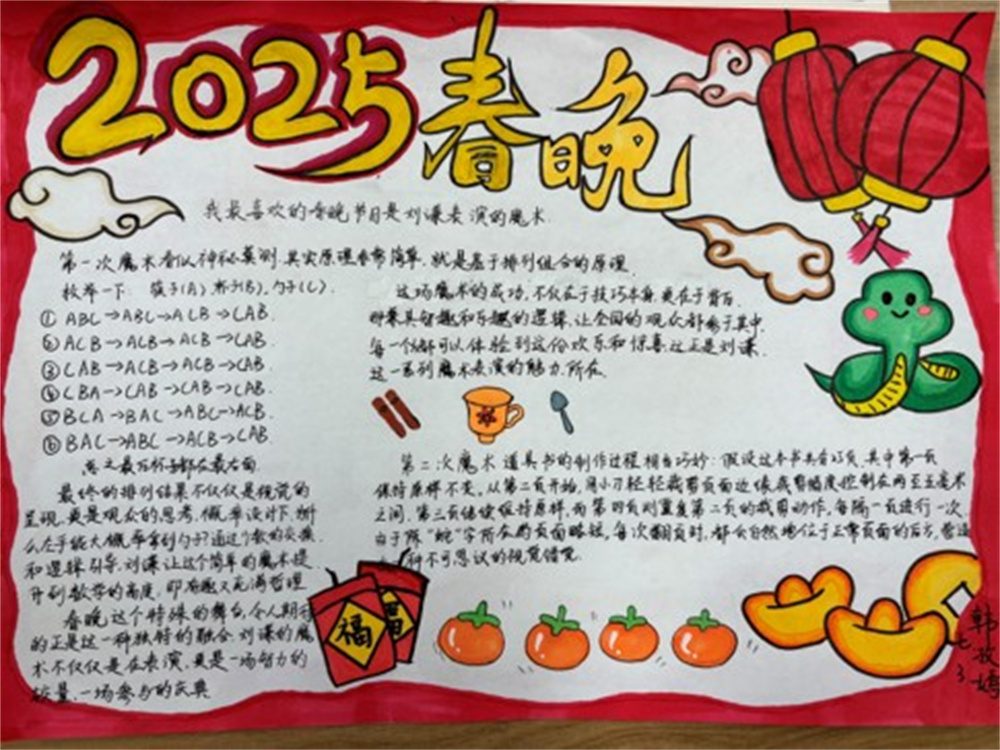 2025春晚
我最喜欢的春晚节目是刘谦表演的魔术.
第一次魔术看似神秘莫测.其实原理非常简单.就是基于排列组合的原理.
枚举一下: 筷子(A) 杯子(B),勺子(C).
① ABC→ABC→ACB→CAB.
② ACB→ACB→ACB→CAB.
③ CAB→ACB→ACB→CAB.
④ CBA→CAB→CAB→CAB.
⑤ BCA→BAC→ABC→ACB.
⑥ BAC→ABC→ACB→CAB.
总之最后杯子都在最右面
最终的排列结果不仅仅是视觉的
呈现.更是观众的思考.概率设计下.
么左手能大概率拿到勺子?通过个数的交换
和逻辑引导.刘谦让这个简单的魔术提
升到数学的高度,即有趣又充满哲理
春晚这个特殊的舞台,令人期待
的正是这一种独特的融合.刘谦的魔
术不仅仅是在表演.更是一场智力的
较量.一场参与的庆典
这场魔术的成功,不仅在于技巧本身.更在于背后.
那兼具智趣和乐趣的逻辑.让全国的观众都参于其中.
每一个都可以体验到这份欢乐和惊喜.这正是刘谦.
这一系列魔术表演的魅力.所在.
第二次魔术道具书的制作过程相当巧妙:假设这本书共有页.其中第一页
保持原样不变.从第二页开始,用小刀轻轻裁剪页面边缘.裁剪幅度控制在两至五毫米
之间.第三页继续保持原样,而第四页则重复第二页的裁剪动作,每隔一页进行一次
由于所"蛇"字所在的页面略短,每次翻页时,都会自然地位于正常页面的后方,营造
种不可思议的视觉错觉.
福
福
七.3
韩